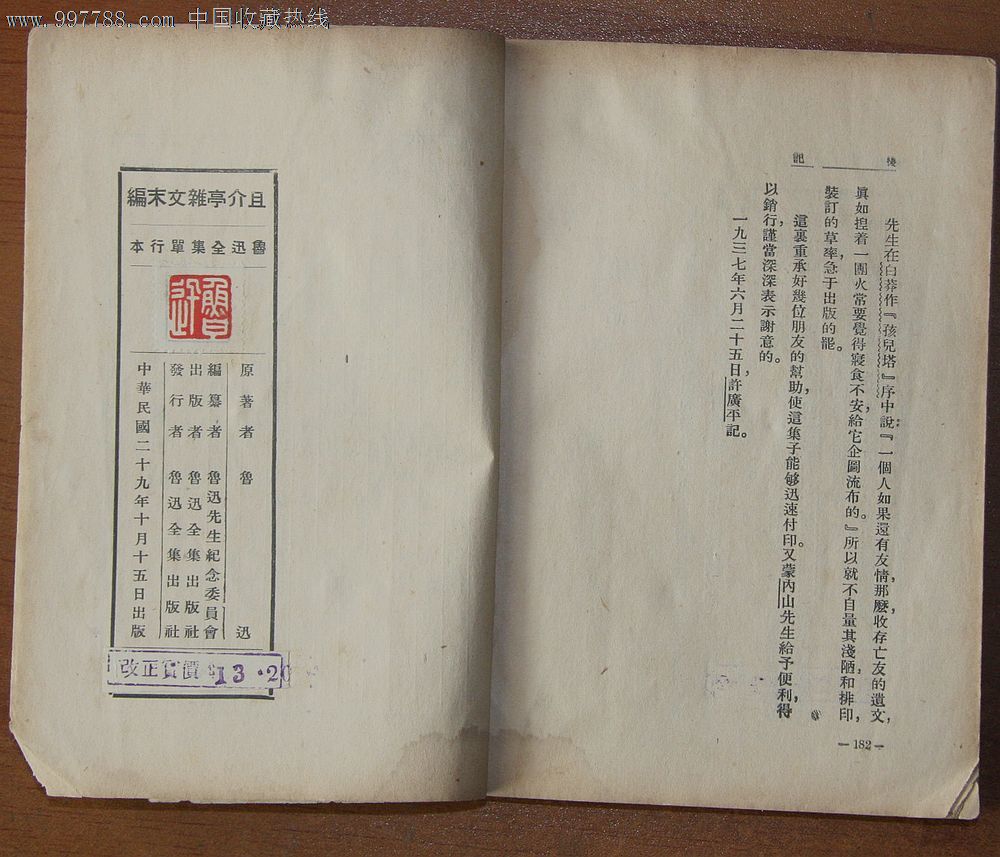 www.997788.com 中国收藏热线
後記
先生在白莽作『孩兒塔』序中說：『一個人如果還有友情，那麼收存亡友的遺文，
眞如揑着一團火，常要覺得寢食不安，給它企圖流布的。』所以就不自量其淺陋，和排印，
裝訂的草率，急于出版的罷。
這裏重承好幾位朋友的幫助，使這集子能够迅速付印。又蒙內山先生給予便利，得
以銷行，謹當深深表示謝意的。
一九三七年六月二十五日，許廣平記。
—182—
且介亭雜文末編
魯迅全集單行本
魯迅
原著者 魯迅
編纂者 魯迅先生紀念委員會
出版者 魯迅全集出版社
發行者 魯迅全集出版社
中華民國二十九年十月十五日出版
改正實價 13.20